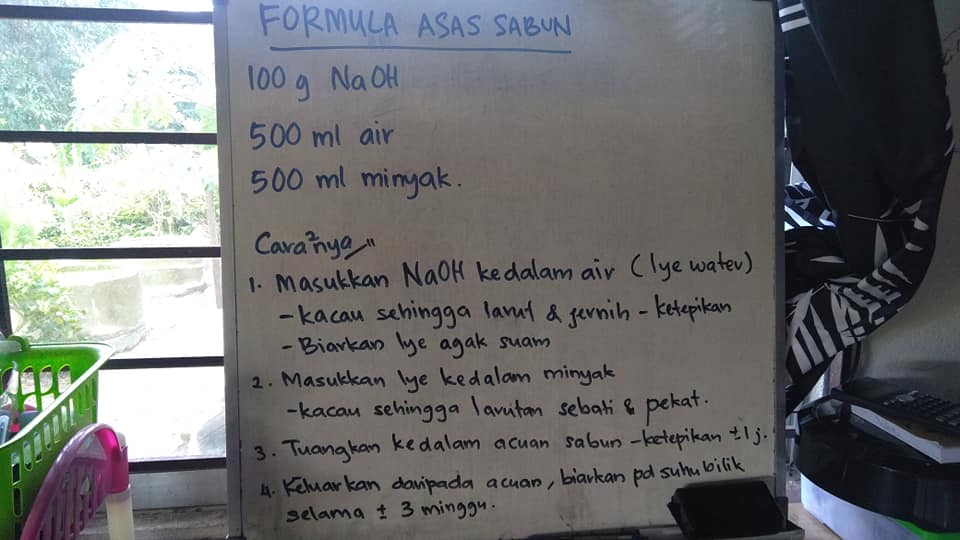 FORMULA ASAS SABUN
100 g NaOH
500 ml air
500 ml minyak.
Cara²nya
1. Masukkan NaOH kedalam air (lye water)
- kacau sehingga larut & jernih - ketepikan
- Biarkan lye agak suam
2. Masukkan lye kedalam minyak
- kacau sehingga larutan sebati & pekat.
3. Tuangkan kedalam acuan sabun - ketepikan ± 1 j.
4. Keluarkan daripada acuan, biarkan pd suhu bilik
selama ± 3 minggu.